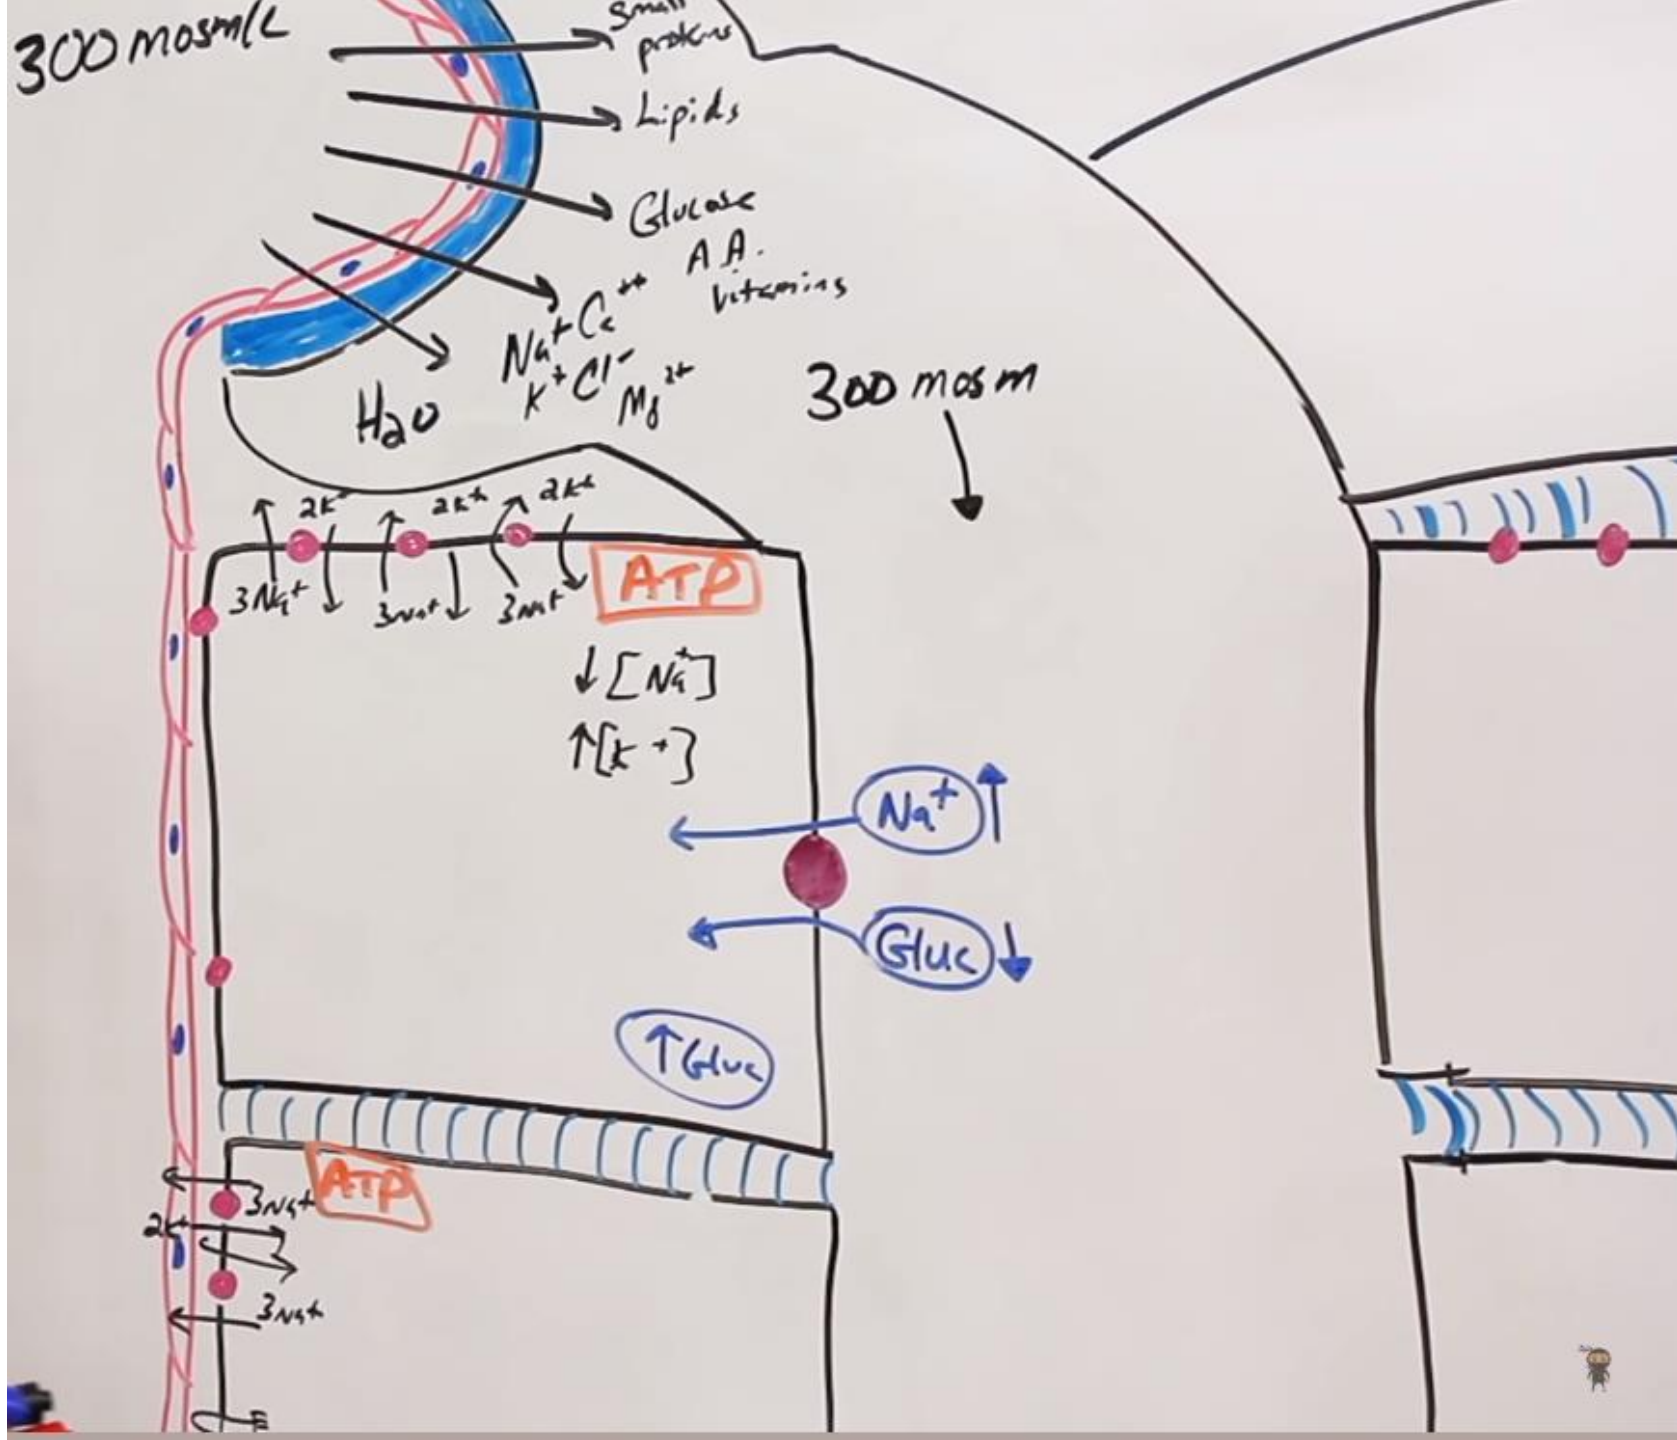 300 mosm/L
Small
proteins
Lipids
Glucose
A.A.
Vitamins
Na+ Ca++
K+ Cl- Mg2+
H2O
300 mosm
2K+ 2K+ 2K+
3Na+ 3Na+ 3Na+
ATP
↓[Na+]
↑[K+]
Na+ ↑
Gluc ↓
↑Gluc
ATP
3Na+
2K+
3Na+